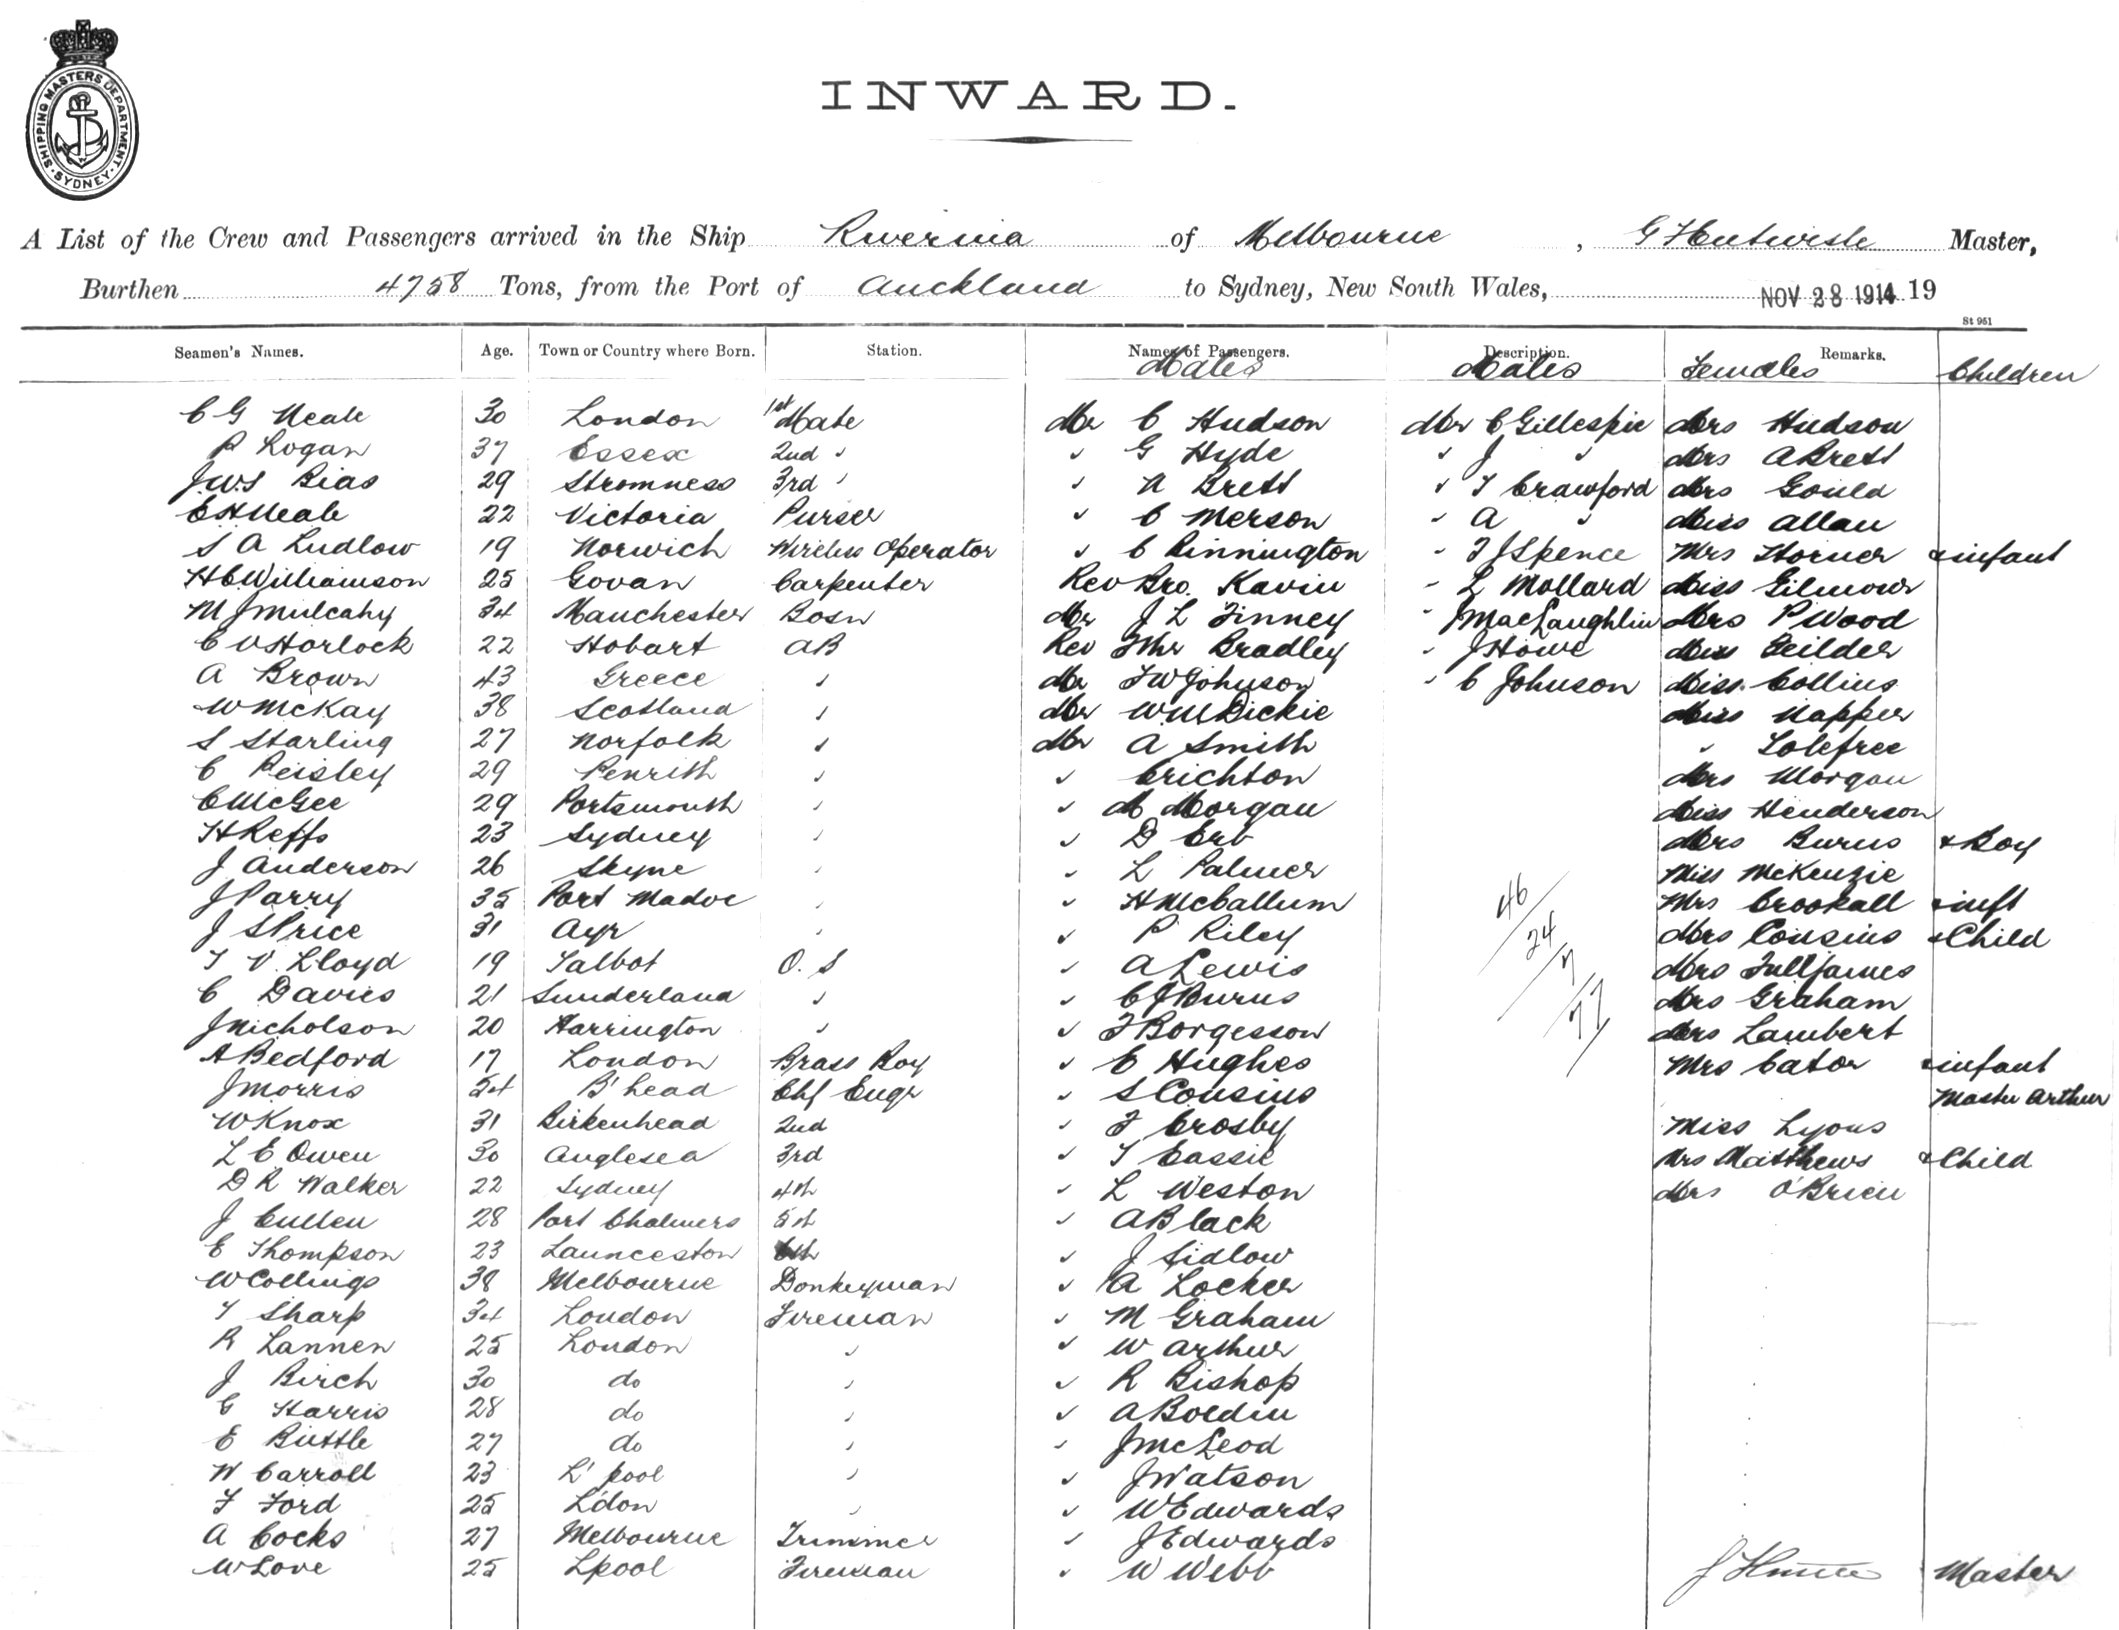 SHIPPING MASTERS DEPARTMENT
SYDNEY
INWARD.
A List of the Crew and Passengers arrived in the Ship Riverina of Melbourne, G Master,
Burthen 4758 Tons, from the Port of Auckland to Sydney, New South Wales, NOV 28 1914 19
St 951
Seamen's Names. Age. Town or Country where Born. Station. Names of Passengers. Description. Remarks.
Males Males Females Children
C G Neale 30 London 1st Mate Mr C Hudson Mr C Gillespie Mrs Hudson
P Logan 37 Essex 2nd " " G Hyde " J " Mrs A Brett
J W S Bias 29 Stromness 3rd " " A Brett " T Crawford Mrs Gould
C H Neale 22 Victoria Purser " C Merson " A " Miss Allan
S A Ludlow 19 Norwich Wireless Operator " C Pinnington " T J Spence Mrs Horner & infant
H C Williamson 25 Govan Carpenter Rev Bro. Kavin " L Mollard Miss Gilmour
M J Mulcahy 34 Manchester Bosn Mr J L Finney " J MacLaughlin Mrs P Wood
C V Horlock 22 Hobart AB Rev Fthr Bradley " J Howe Miss Geilder
A Brown 43 Greece " Mr F W Johnson " C Johnson Miss Collins
W McKay 38 Scotland " Mr W M Dickie Miss Napper
S Starling 27 Norfolk " Mr A Smith " Tolefree
C Peisley 29 Penrith " " Crichton Mrs Morgan
C McGee 29 Portsmouth " " M Morgan Miss Henderson
H Reffs 23 Sydney " " D Erb Mrs Burns & Boy
J Anderson 26 Skyne " " L Palmer Miss McKenzie
J Parry 35 Port Madoc " " H McCallum 46 Mrs Crookall & inft
J S Price 31 Ayr " " P Riley 24 Mrs Cousins & Child
T V Lloyd 19 Talbot O. S " A Lewis 7 Mrs Fulljames
C Davies 21 Sunderland " " C J Burns 77 Mrs Graham
J Nicholson 20 Harrington " " F Borgesson Mrs Lambert
A Bedford 17 London Brass Boy " C Hughes Mrs Cator & infant
J Morris 54 B'head Chf Engr " S Cousins Master Arthur
W Knox 31 Birkenhead 2nd " F Crosby Miss Lyons
L E Owen 30 Anglesea 3rd " T Cassie Mrs Matthews & Child
D R Walker 22 Sydney 4th " L Weston Mrs O'Brien
J Cullen 28 Port Chalmers 5th " A Black
E Thompson 23 Launceston 6th " J Sidlow
W Collings 38 Melbourne Donkeyman " A Locker
T Sharp 34 London Fireman " M Graham
R Lannen 25 London " " W Arthur
J Birch 30 do " " R Bishop
G Harris 28 do " " A Boldin
E Buttle 27 do " " J McLeod
W Carroll 23 L'pool " " J Watson
F Ford 25 L'don " " W Edwards
A Cocks 27 Melbourne Trimmer " J Edwards
W Love 25 Lpool Fireman " W Webb Master